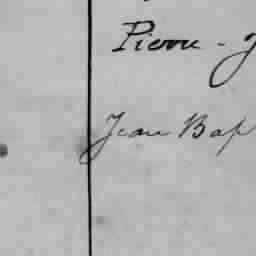 Pierre - J
Jean Bap